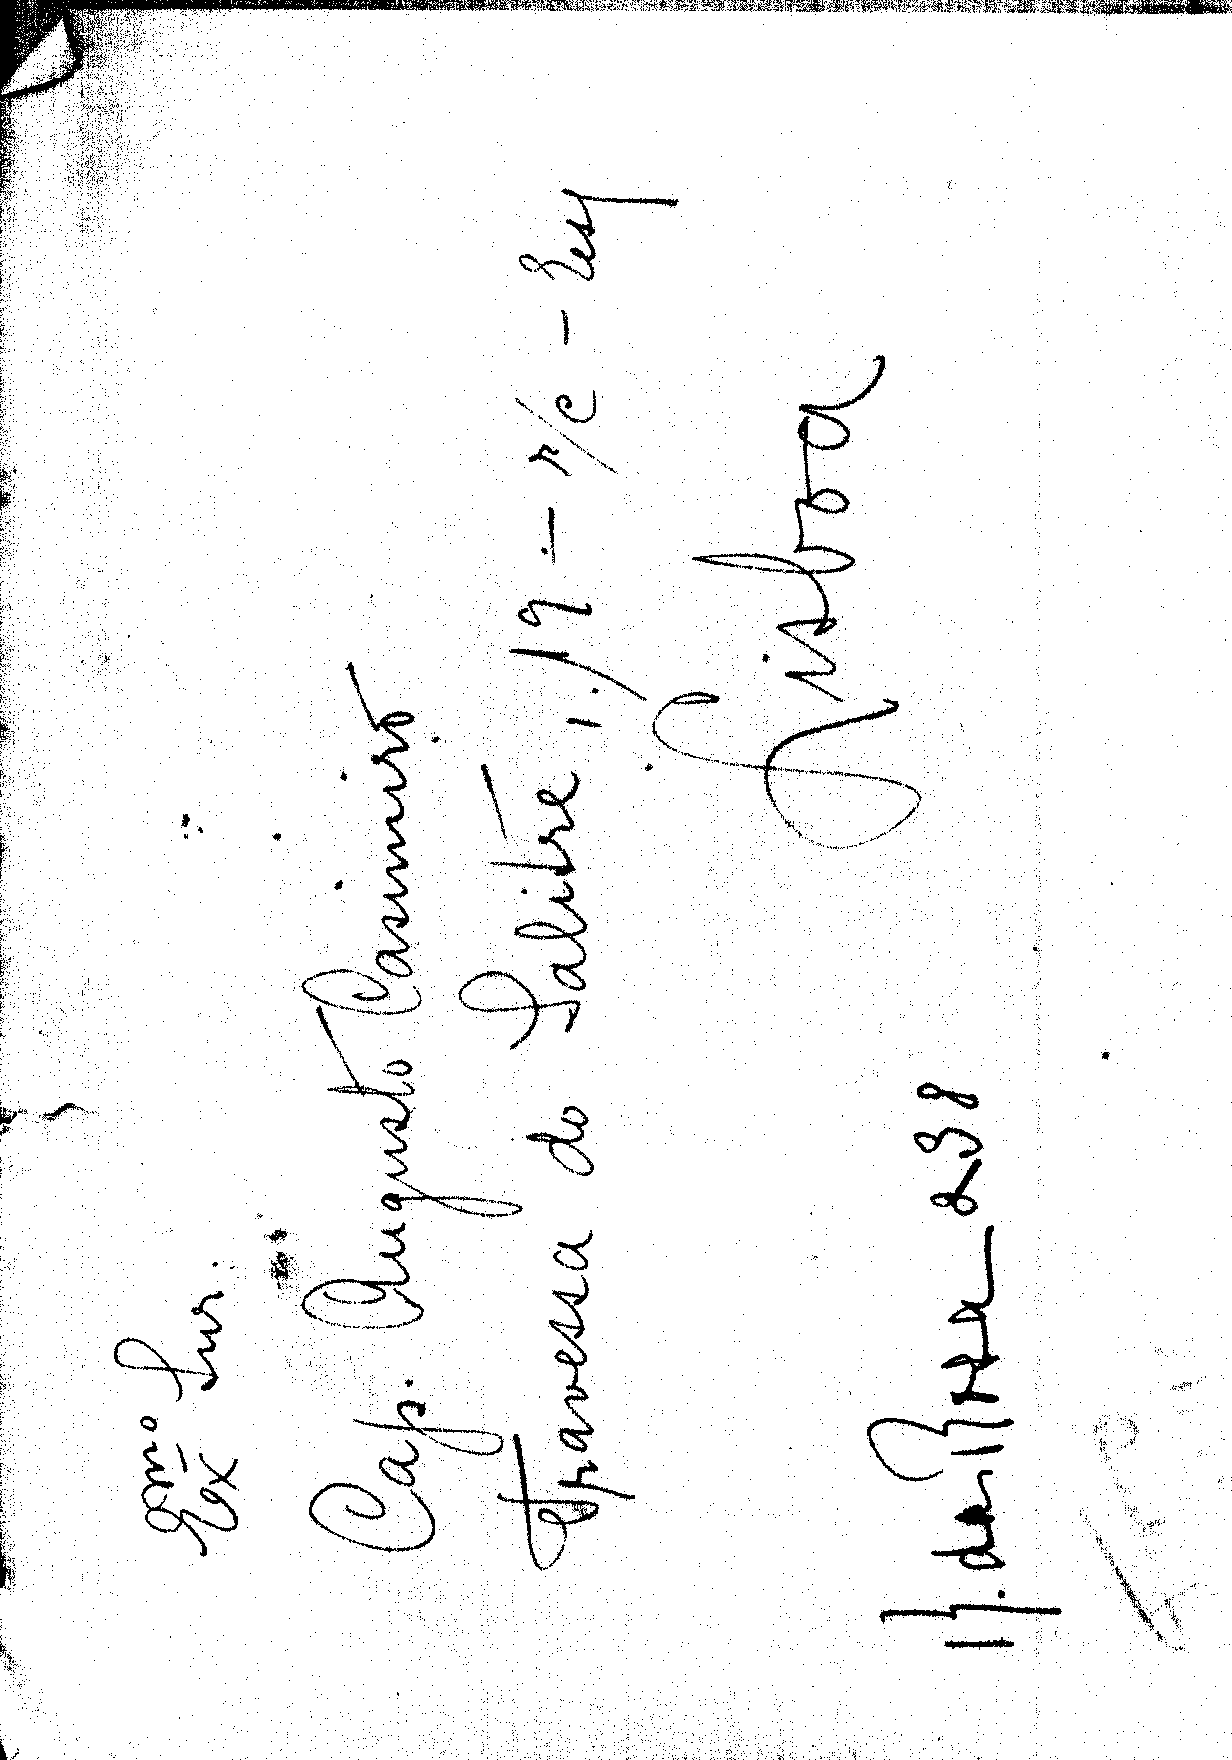 Exmo Snr.
Cap. Augusto Casimiro
Travessa do Salitre, 19 - r/c - Esq
Lisboa
17. de 238